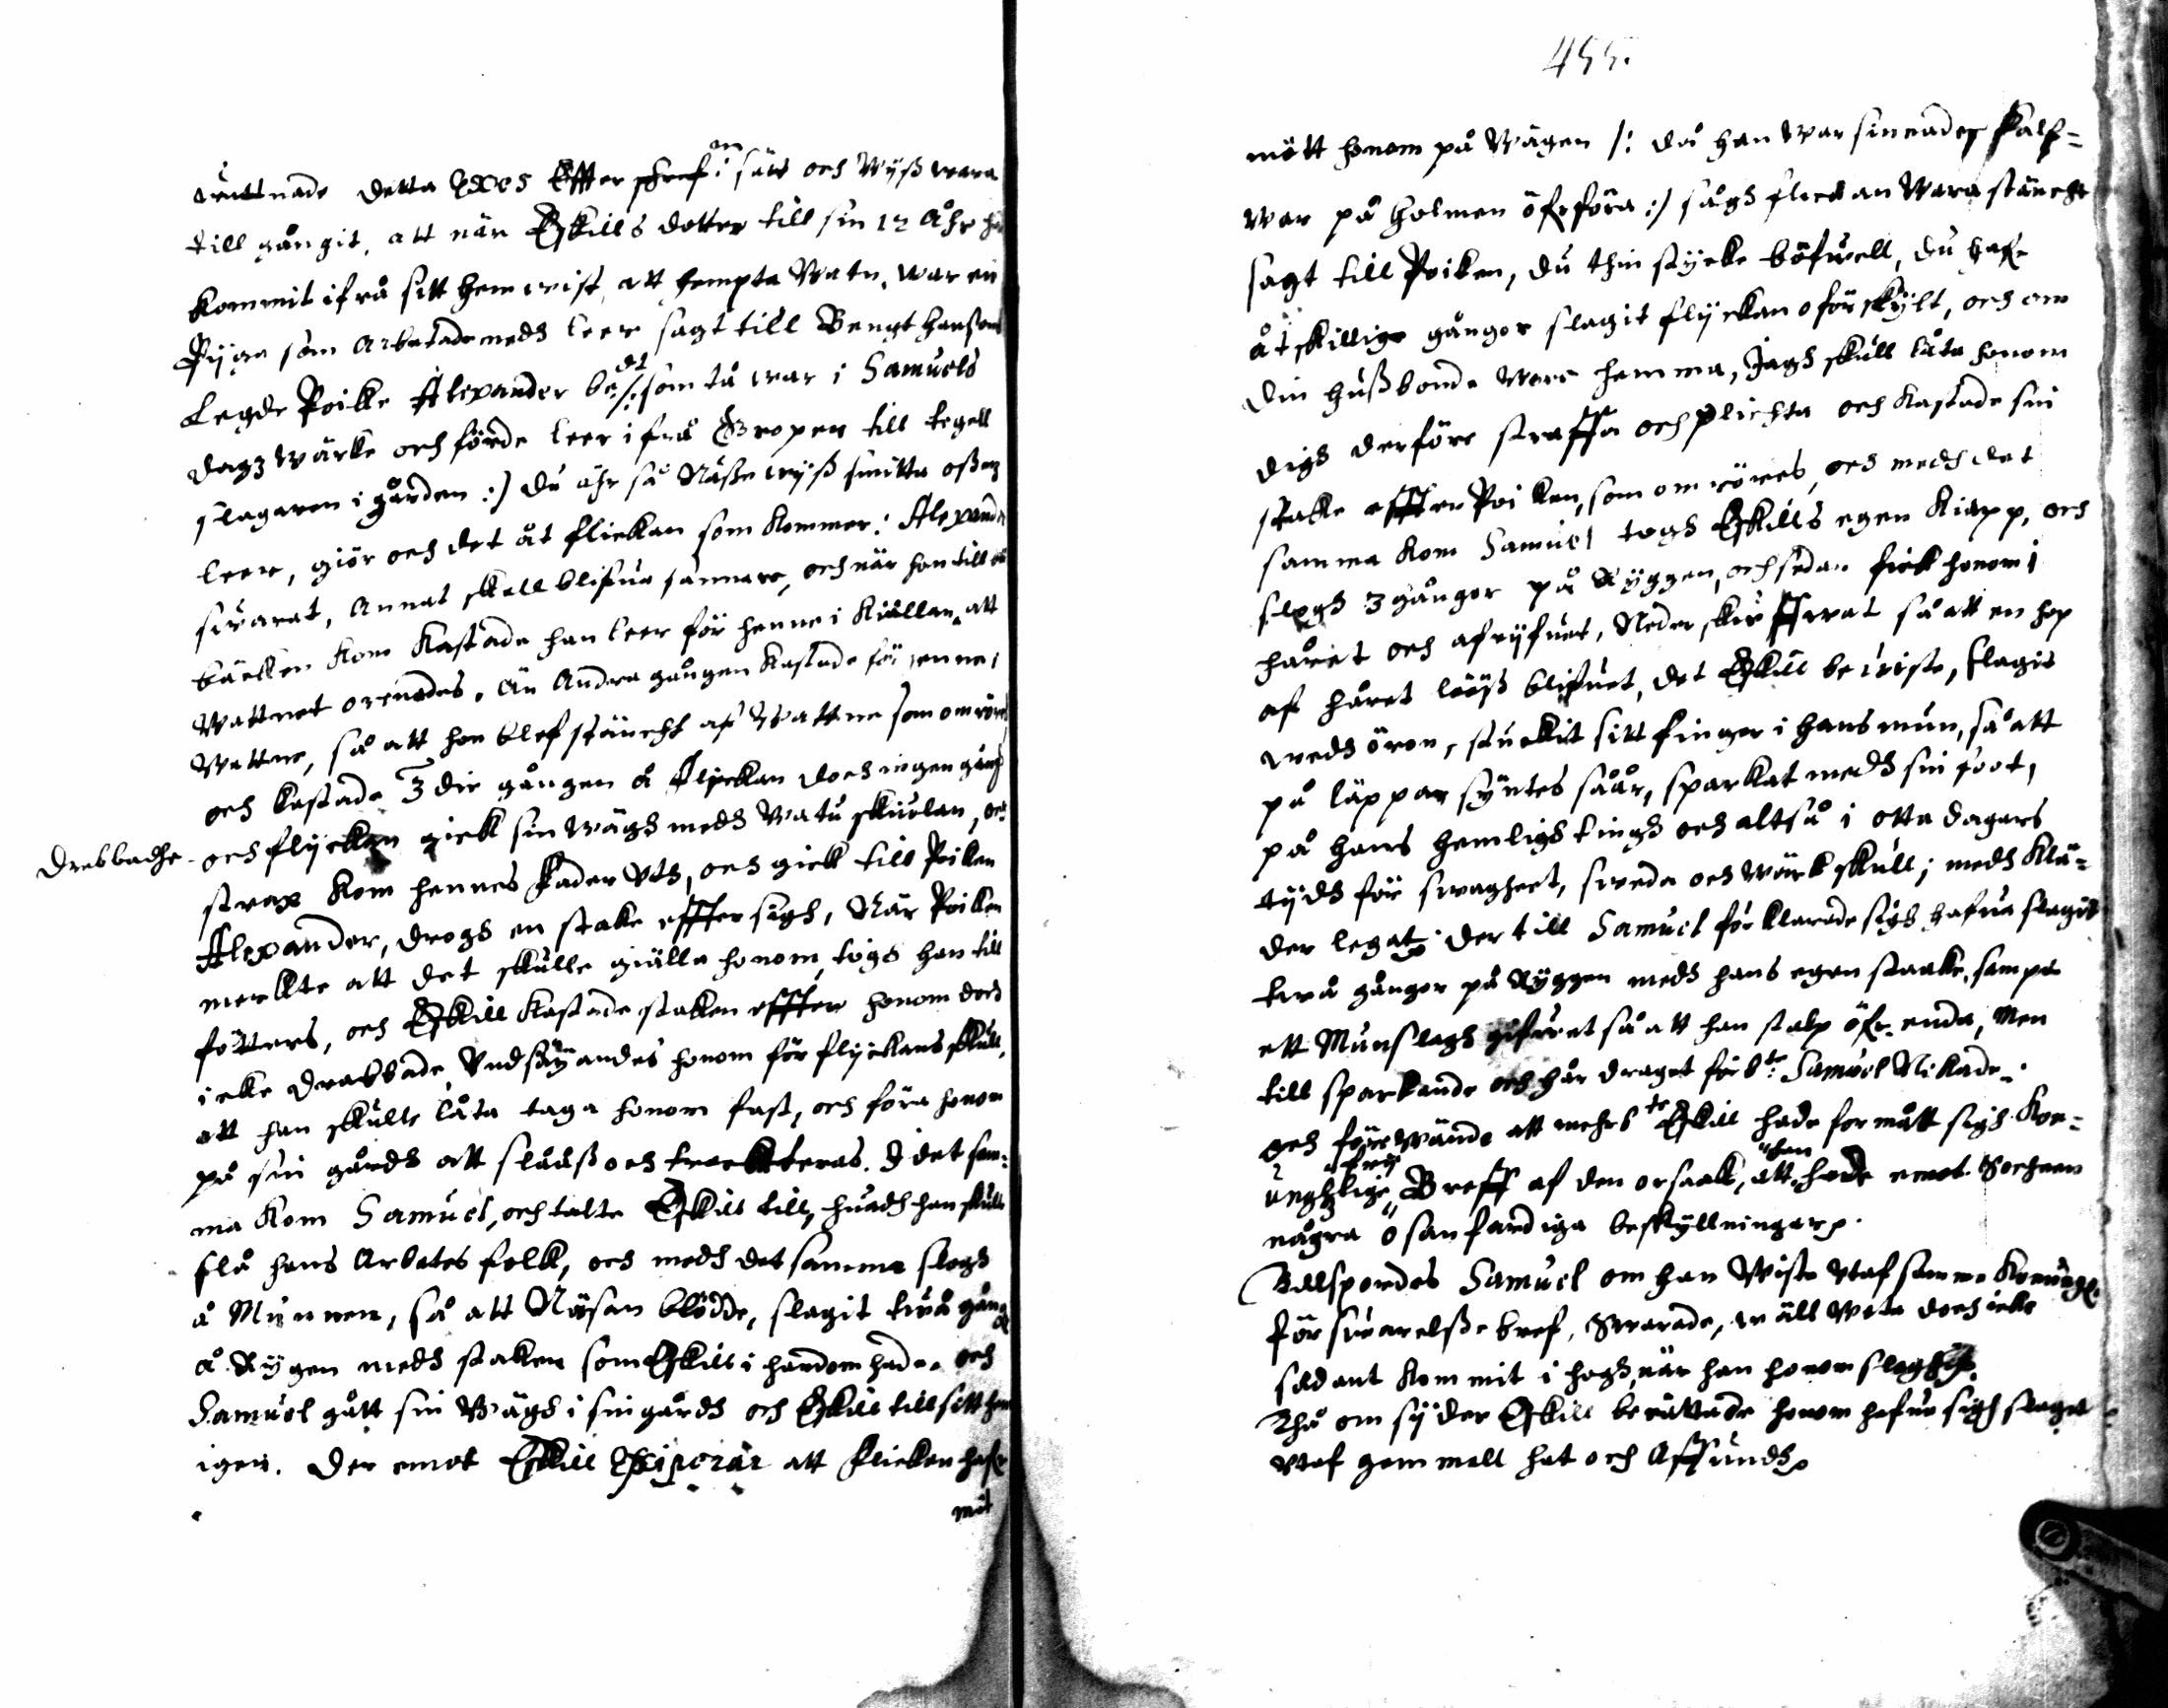 rättnade detta Exces Effter schref:n i sätt och Wijß wara
till gångit, att när Eskills dotter till sin 12 Åhr ha
kommit ifrå sitt hemwist, att hempta Watn, war en
Pijga som arbetade medh leer sagt till Bengt Hanßons
Legde Poike Alexander be:dt /: som tå war i Samuels
dagz wärke och förde leer ifrå Gropen till tegell
slagaren i gården :/ du ähr så Näße wijß smitta oß m
leer, giör och det åt flickan som kommer: Alexander
swarat, Annat skall blifua sannare, och när hon till
bäcken kom kastade han leer för henne i Kiällan att
Wattnet orenades. Än Andra gången kastade för henne i
Wattne, så att hon blef stänckt af Wattne som omrördes
och kastade 3die gången å Flickan doch ingen gång
drabbadhe
och flyckan gick sin wägh medh Watu skiulan, och
strax kom hennes Fader Uth, och gick till Poiken
Alexander, drogh en stake effter sigh, När Poiken
merckte att det skulle giälla honom, togh han till
fötters, och Eskill kastade staken effter honom doch
icke drabbade, Undsäyandes honom för flyckans skull,
att han skulle låta taga honom fast, och föra honom
på sin gårdh att slååß och tracktteras. I det sam:
ma kom Samuel, och talte Eskill till, huadh han skulle
slå hans Arbetes folk, och medh det samma slogh
å Munnen, så att Näsan blödde, slagit twå gång:r
å Rygen medh staken som Eskill i handom hade och
Samuel gått sin Wägh i sin gårdh och Eskill till sitt hem
igen. Der emot Eskill Exciperar att Flickan hafr
möt
455.
mött honom på Wägen /: då han war sinnades
war på Holmen öfrföra :/ sågh flickan Wara stänckt
sagt till Poiken, du thin stycke böfwell, du hafr
åtskillige gånger slagit flyckan oförskylt, och om
din hußbonde wore hemma, Jagh skull låta honom
digh derföre straffa och plichta och kastade sin
stake effter Poiken, som omrördes, och medh det
samma kom Samuel togh Eskills egen Kiäpp, och
slogh 3 gånger på Ryggen, och sedan fick honom i
håret och afryfuet, Neder skuffwat så att en hop
af håret lööß blifuet, det Eskill bewiste, slagit
wedh öron, stuckit sitt finger i hans mun, så att
på läppar syntes såår, sparkat medh sin foot,
på hans hemligh tingh och altså i otta dagars
tydh för swagheet, sweda och wärk skull; medh Klä=
der legat. Der till Samuel förklarade sigh hafua slagit
twå gånger på Ryggen medh hans egen staake, sampt
ett Munslagh gifwet så att han stalp öfr enda, Men
till sparkande och hår draget för b:te Samuel Nikade.
och före wände att mehrb:te Eskill hade formått sigh Kon=
unghlige frij Breff af den orsaak, att han hade emot Sochnen
några osanfardiga beskyllningar.
Tillspordes Samuel om han Wiste Utaf samme Konungl:
försuarelße bref, Swarade, wäll Weta doch icke
sådant kommit i hogh, när han honom slogh
Thå om syder Eskill berättade honom hafua sigh slaget
Utaf gammall hat och Affundh.